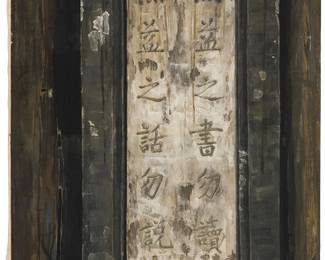 益之書勿讀
益之話勿說